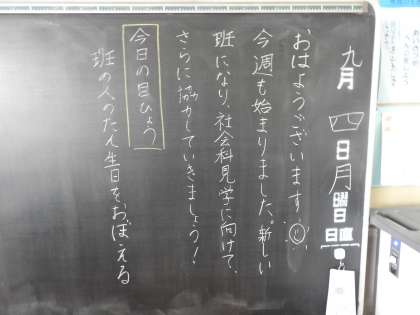 九月 四日 月曜日
日直
おはようございます。
今週も始まりました。新しい
班になり、社会科見学に向けて、
さらに協力していきましょう!
今日の目ひょう
班の人のたん生日を、おぼえる